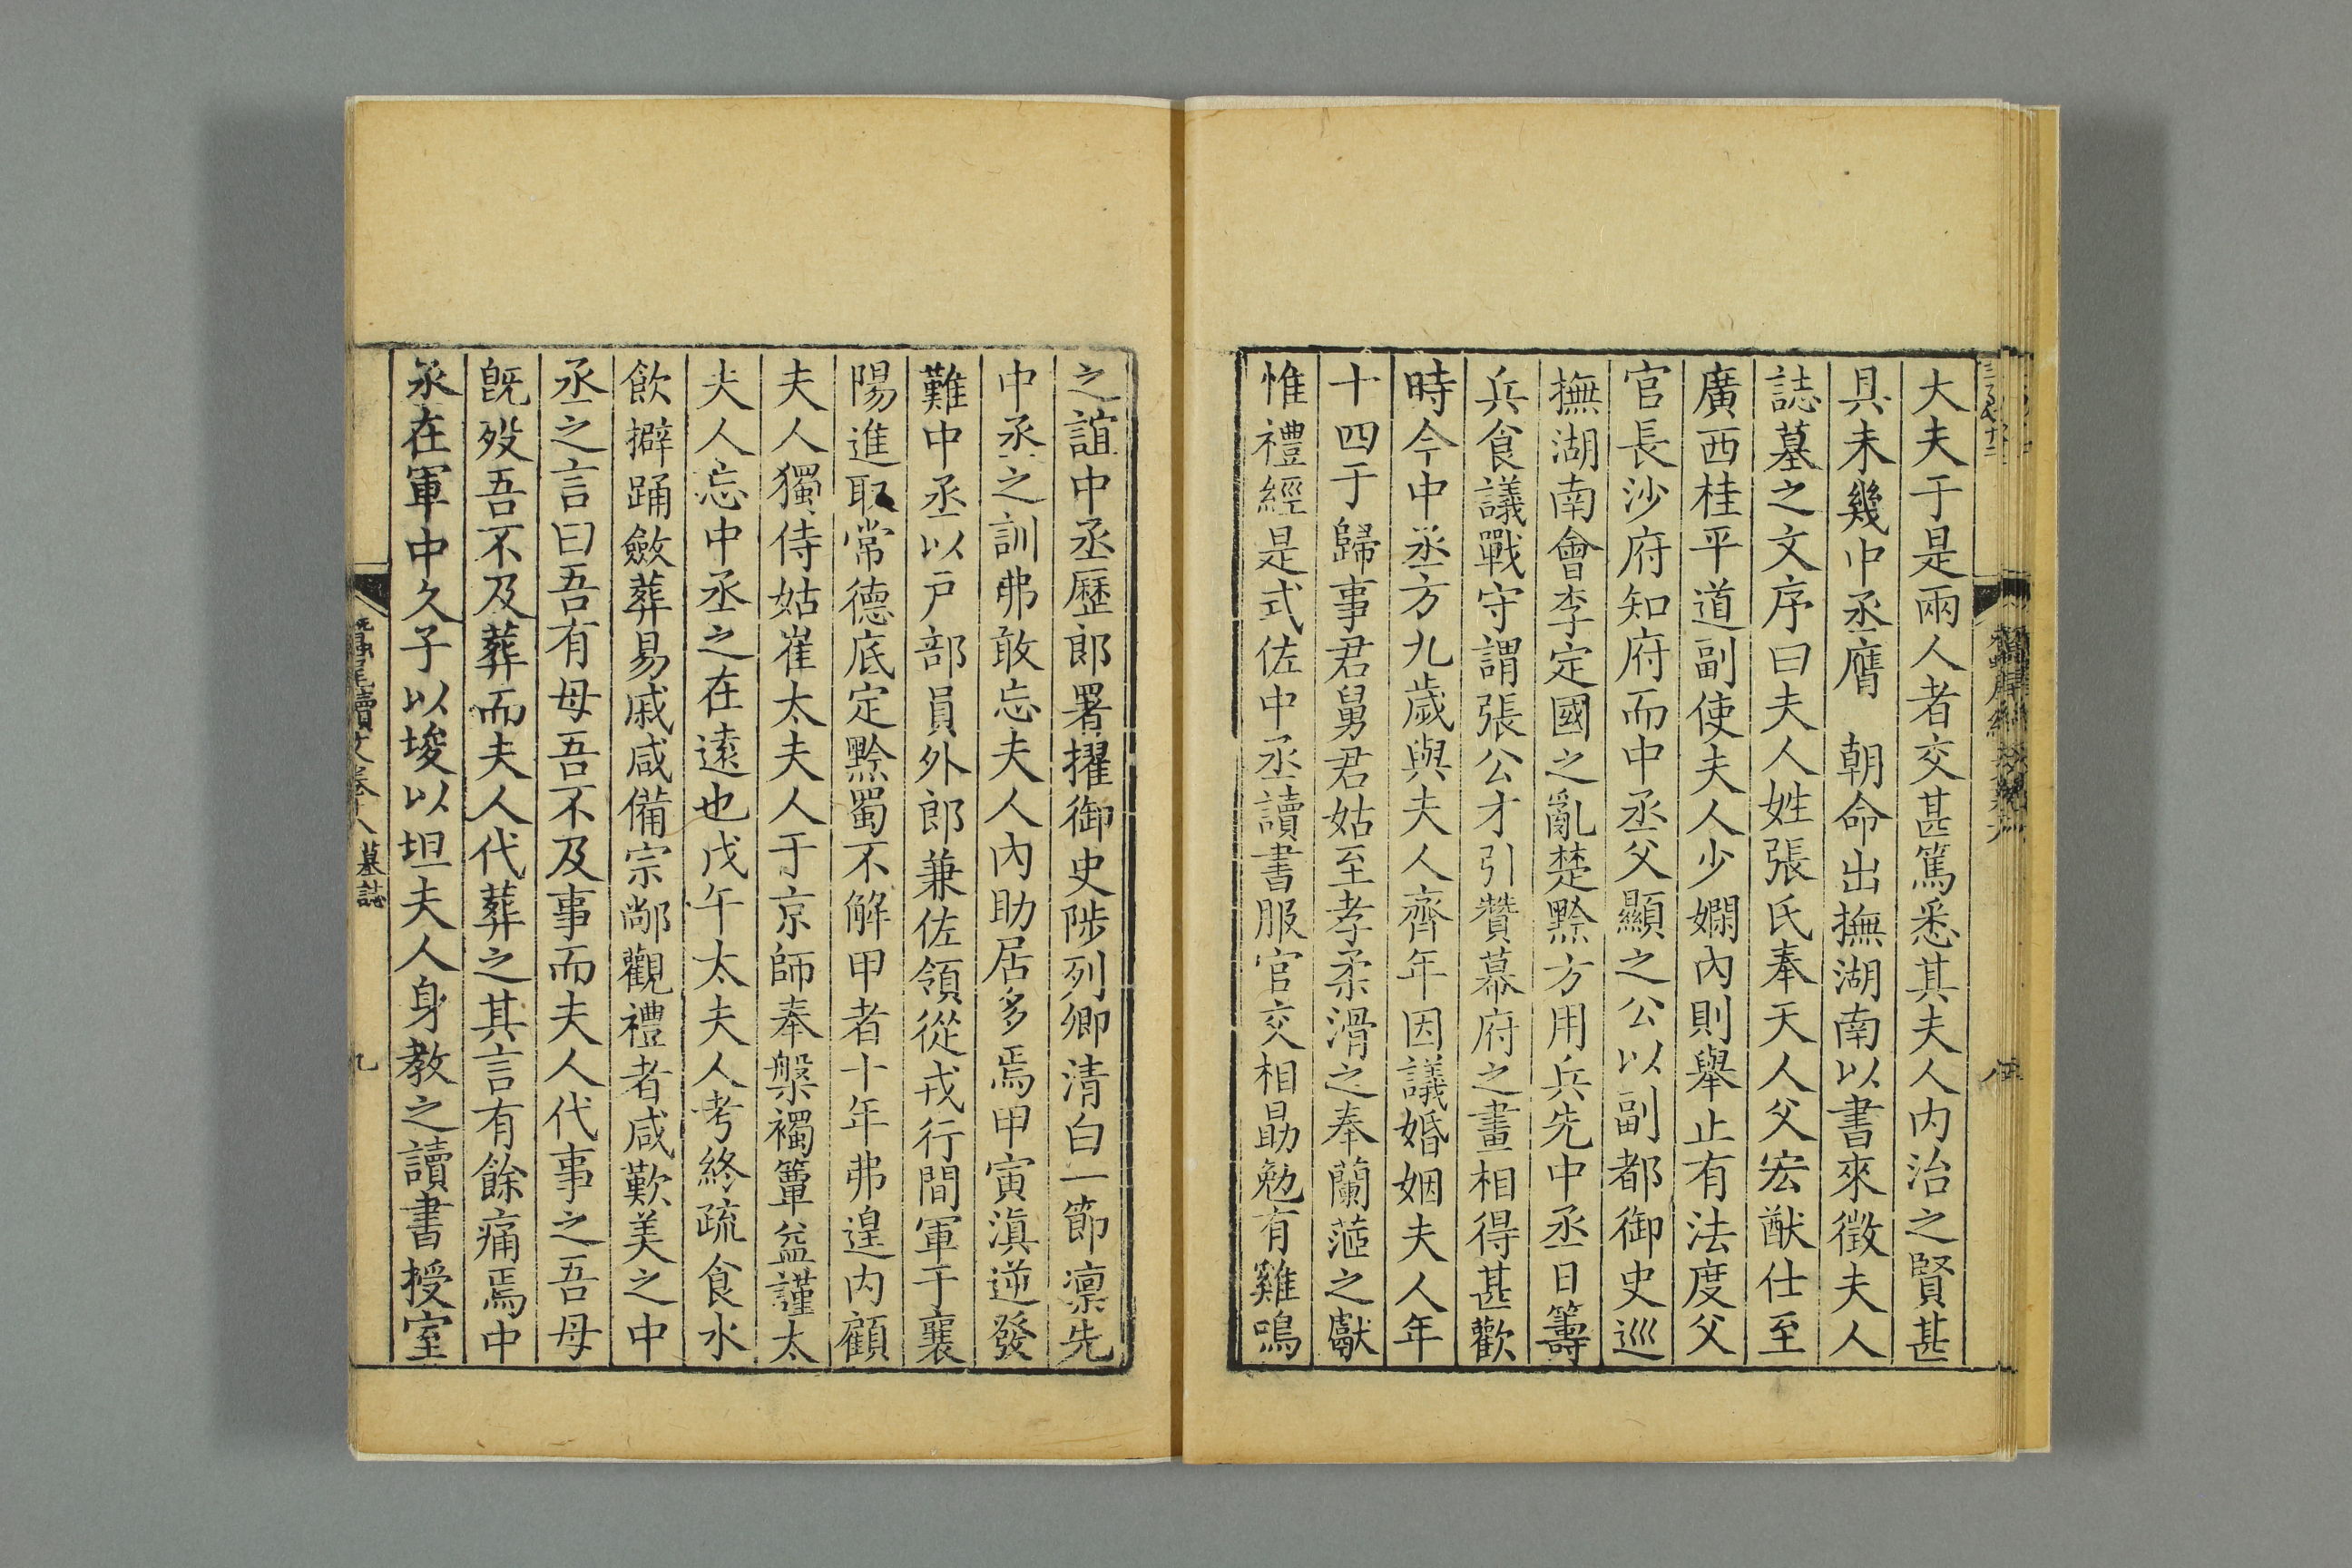 大夫于是兩人者交甚篤悉其夫人内治之賢甚
具未幾中丞膺　朝命出撫湖南以書來徵夫人
誌墓之文序曰夫人姓張氏奉天人父宏猷仕至
廣西桂平道副使夫人少嫻內則舉止有法度父
官長沙府知府而中丞父顯之公以副都御史巡
撫湖南會李定國之亂楚黔方用兵先中丞日籌
兵食議戰守謂張公才引贊幕府之畫相得甚歡
時今中丞方九歲與夫人齊年因議婚姻夫人年
十四于歸事君舅君姑至孝柔滑之奉蘭茝之獻
惟禮經是式佐中丞讀書服官交相勗勉有雞鳴
之誼中丞歷郎署擢御史陟列卿清白一節凛先
中丞之訓弗敢忘夫人內助居多焉甲寅滇逆發
難中丞以戸部員外郎兼佐領從戎行間軍于襄
陽進取常德底定黔蜀不解甲者十年弗遑内顧
夫人獨侍姑崔太夫人于京師奉槃襡簞益謹太
夫人忘中丞之在遠也戊午太夫人考終疏食水
飲擗踊斂葬易戚咸備宗鄰觀禮者咸歎美之中
丞之言曰吾有母吾不及事而夫人代事之吾母
既歿吾不及葬而夫人代葬之其言有餘痛焉中
丞在軍中久子以埈以坦夫人身教之讀書授室
蠶尾續文卷十八　墓誌　九